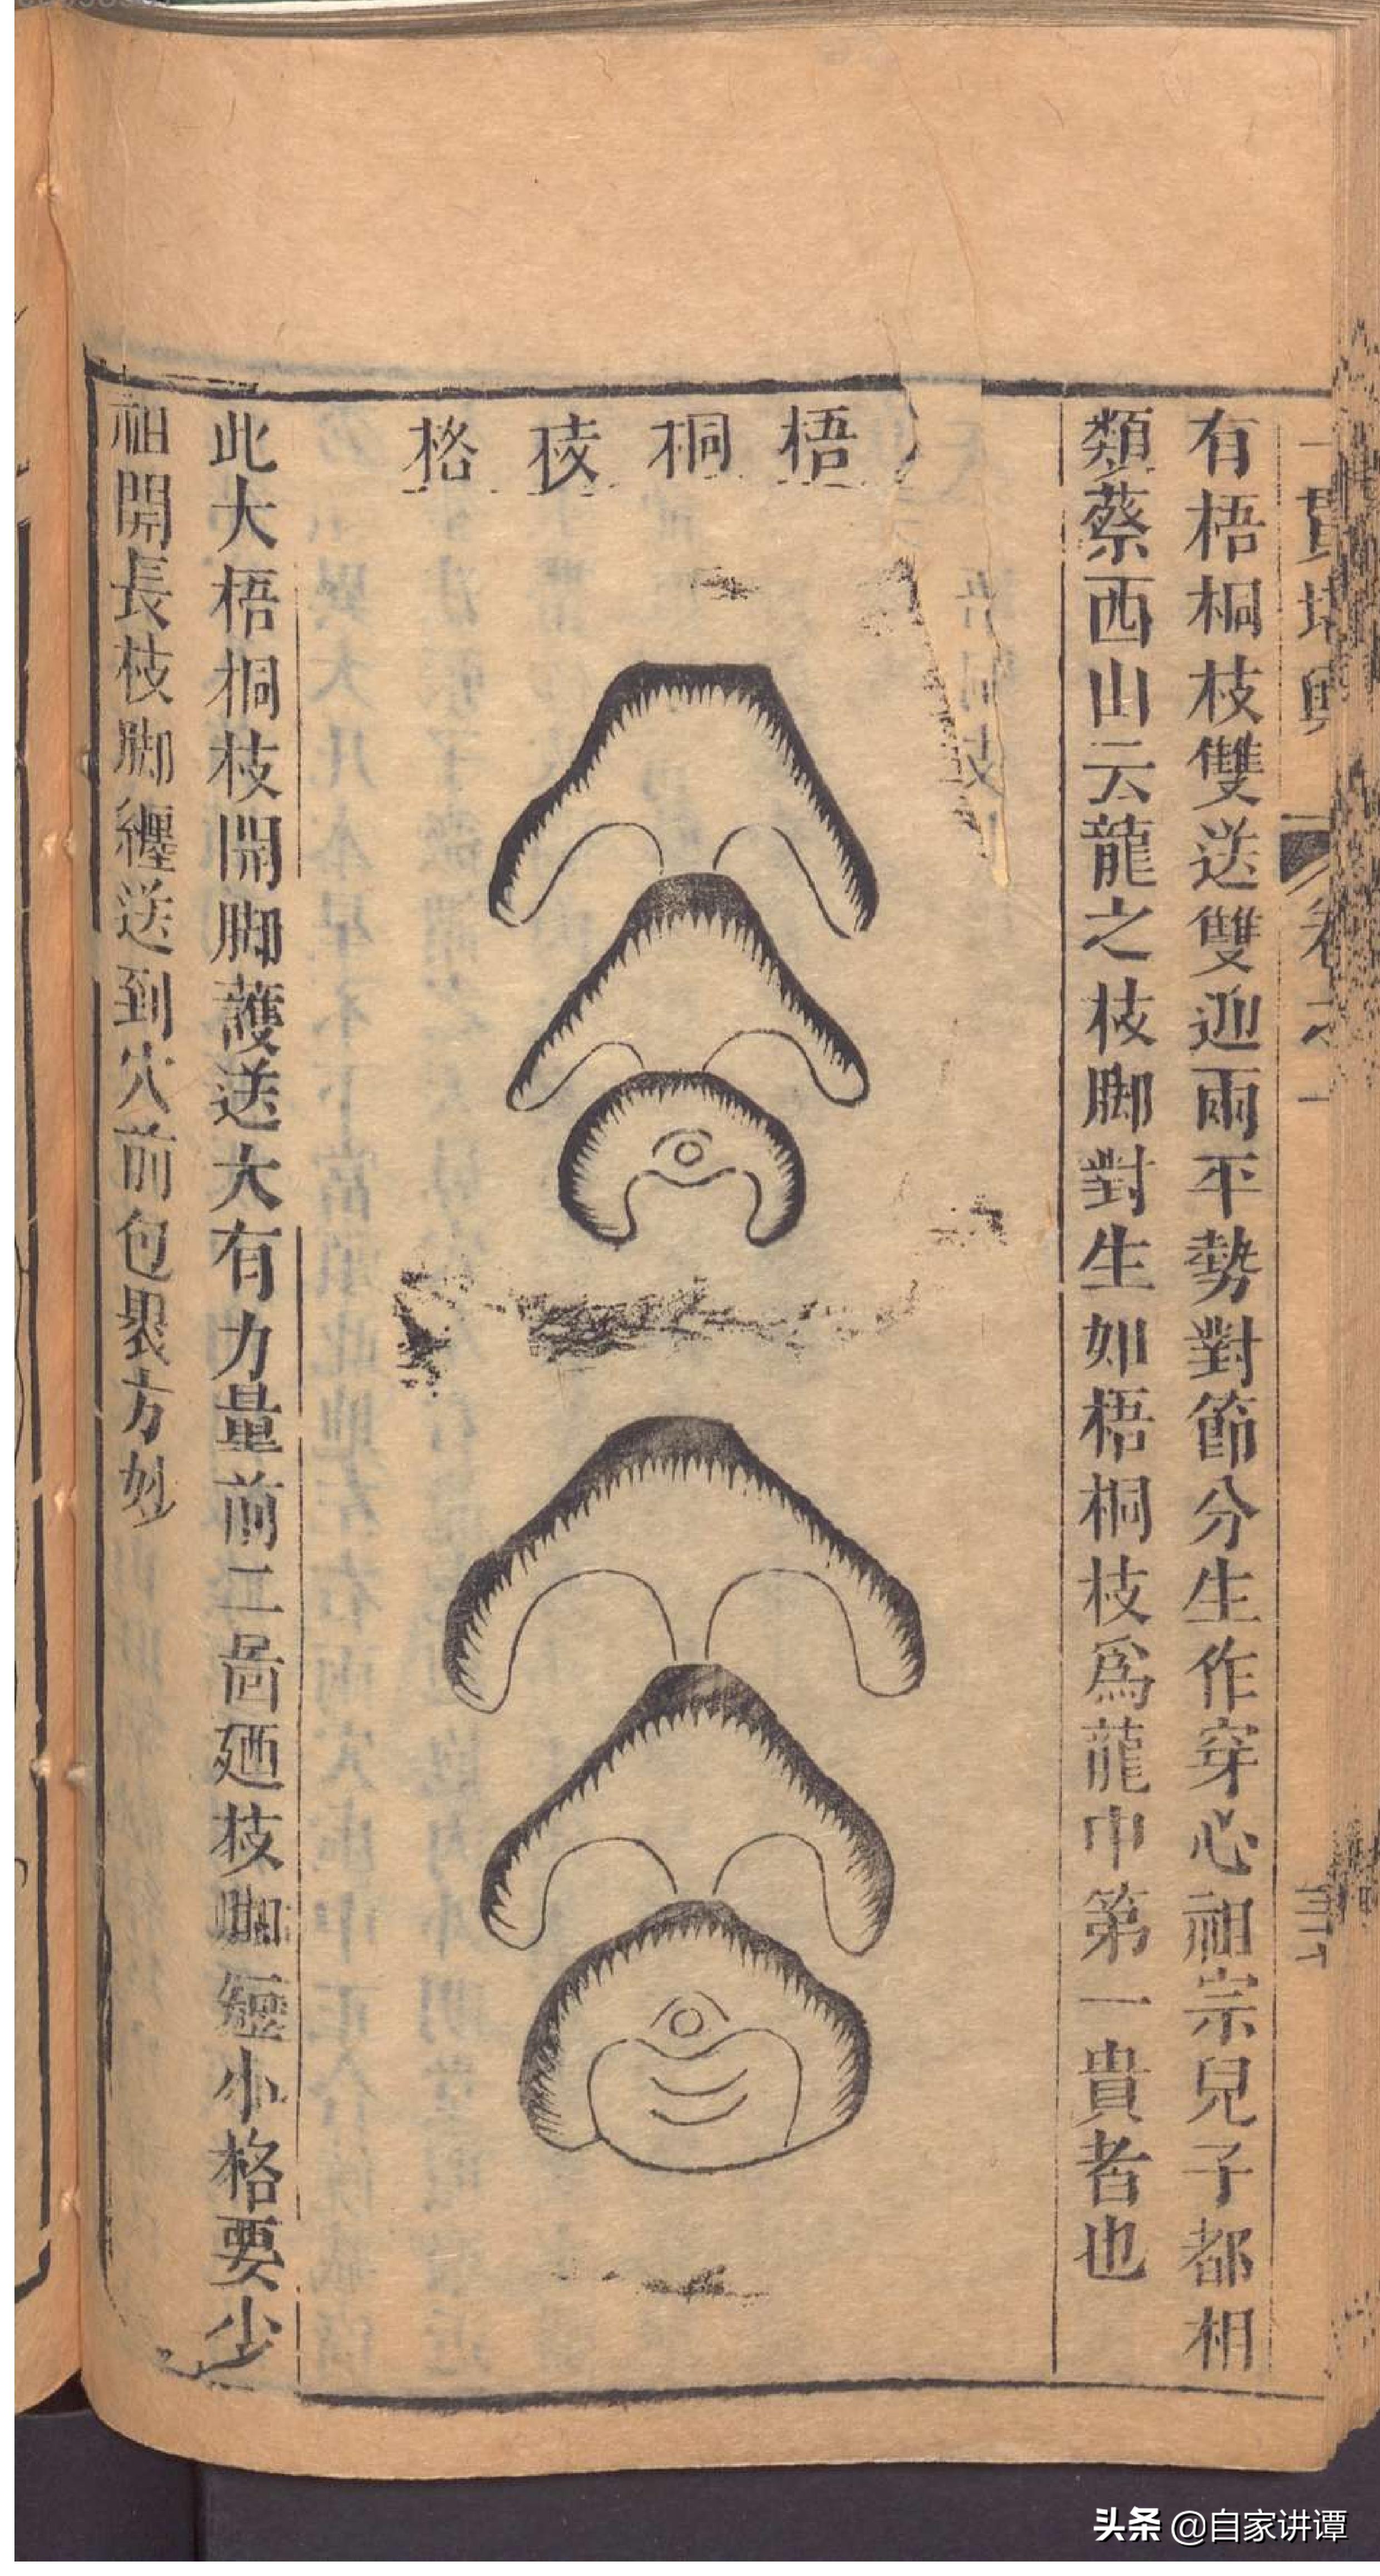 一貫堪輿 卷之一
有梧桐枝雙送雙迎兩平勢對節分生作穿心祖宗兒子都相
類蔡西山云龍之枝脚對生如梧桐枝爲龍中第一貴者也
梧桐枝格
此大梧桐枝開脚護送大有力量前二啚廼枝脚短小格要少
祖開長枝脚纏送到穴前包裹方妙
头条 @自家讲谭